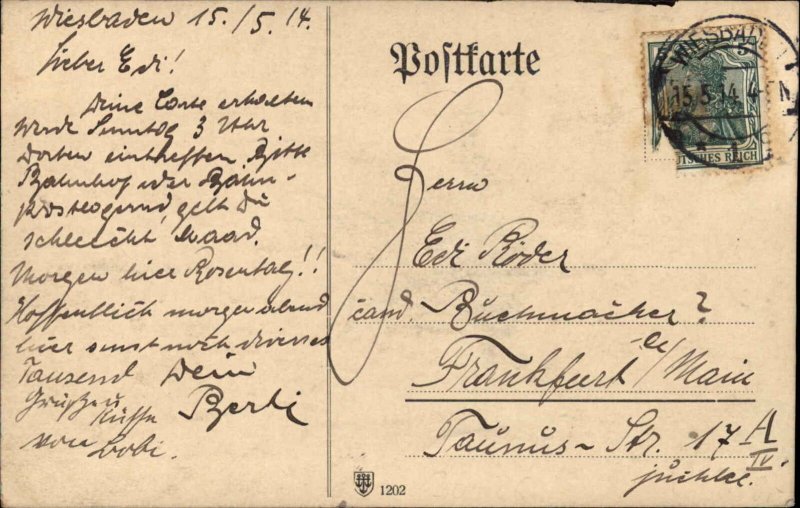 Wiesbaden 15./5.14.
Lieber Edi!
Deine Carte erhalten
werde Sonntag 3 Uhr
dorten eintreffen Bitte
Bahnhof oder Bahn-
postlagernd, gelt Du
schleecht
Morgen hier Rosentag!!
Hoffentlich morgen abend
hier sonst noch diverses
Tausend Dein
Grüße u Berti
Küsse
von Lobi.
Postkarte
WIESBADEN 1
15.5.14. 4-5N
DEUTSCHES REICH
Herrn
Edi Röder
cand. Buchmacher?
Frankfurt a/Main
Taunus-Str. 17 A
IV
1202